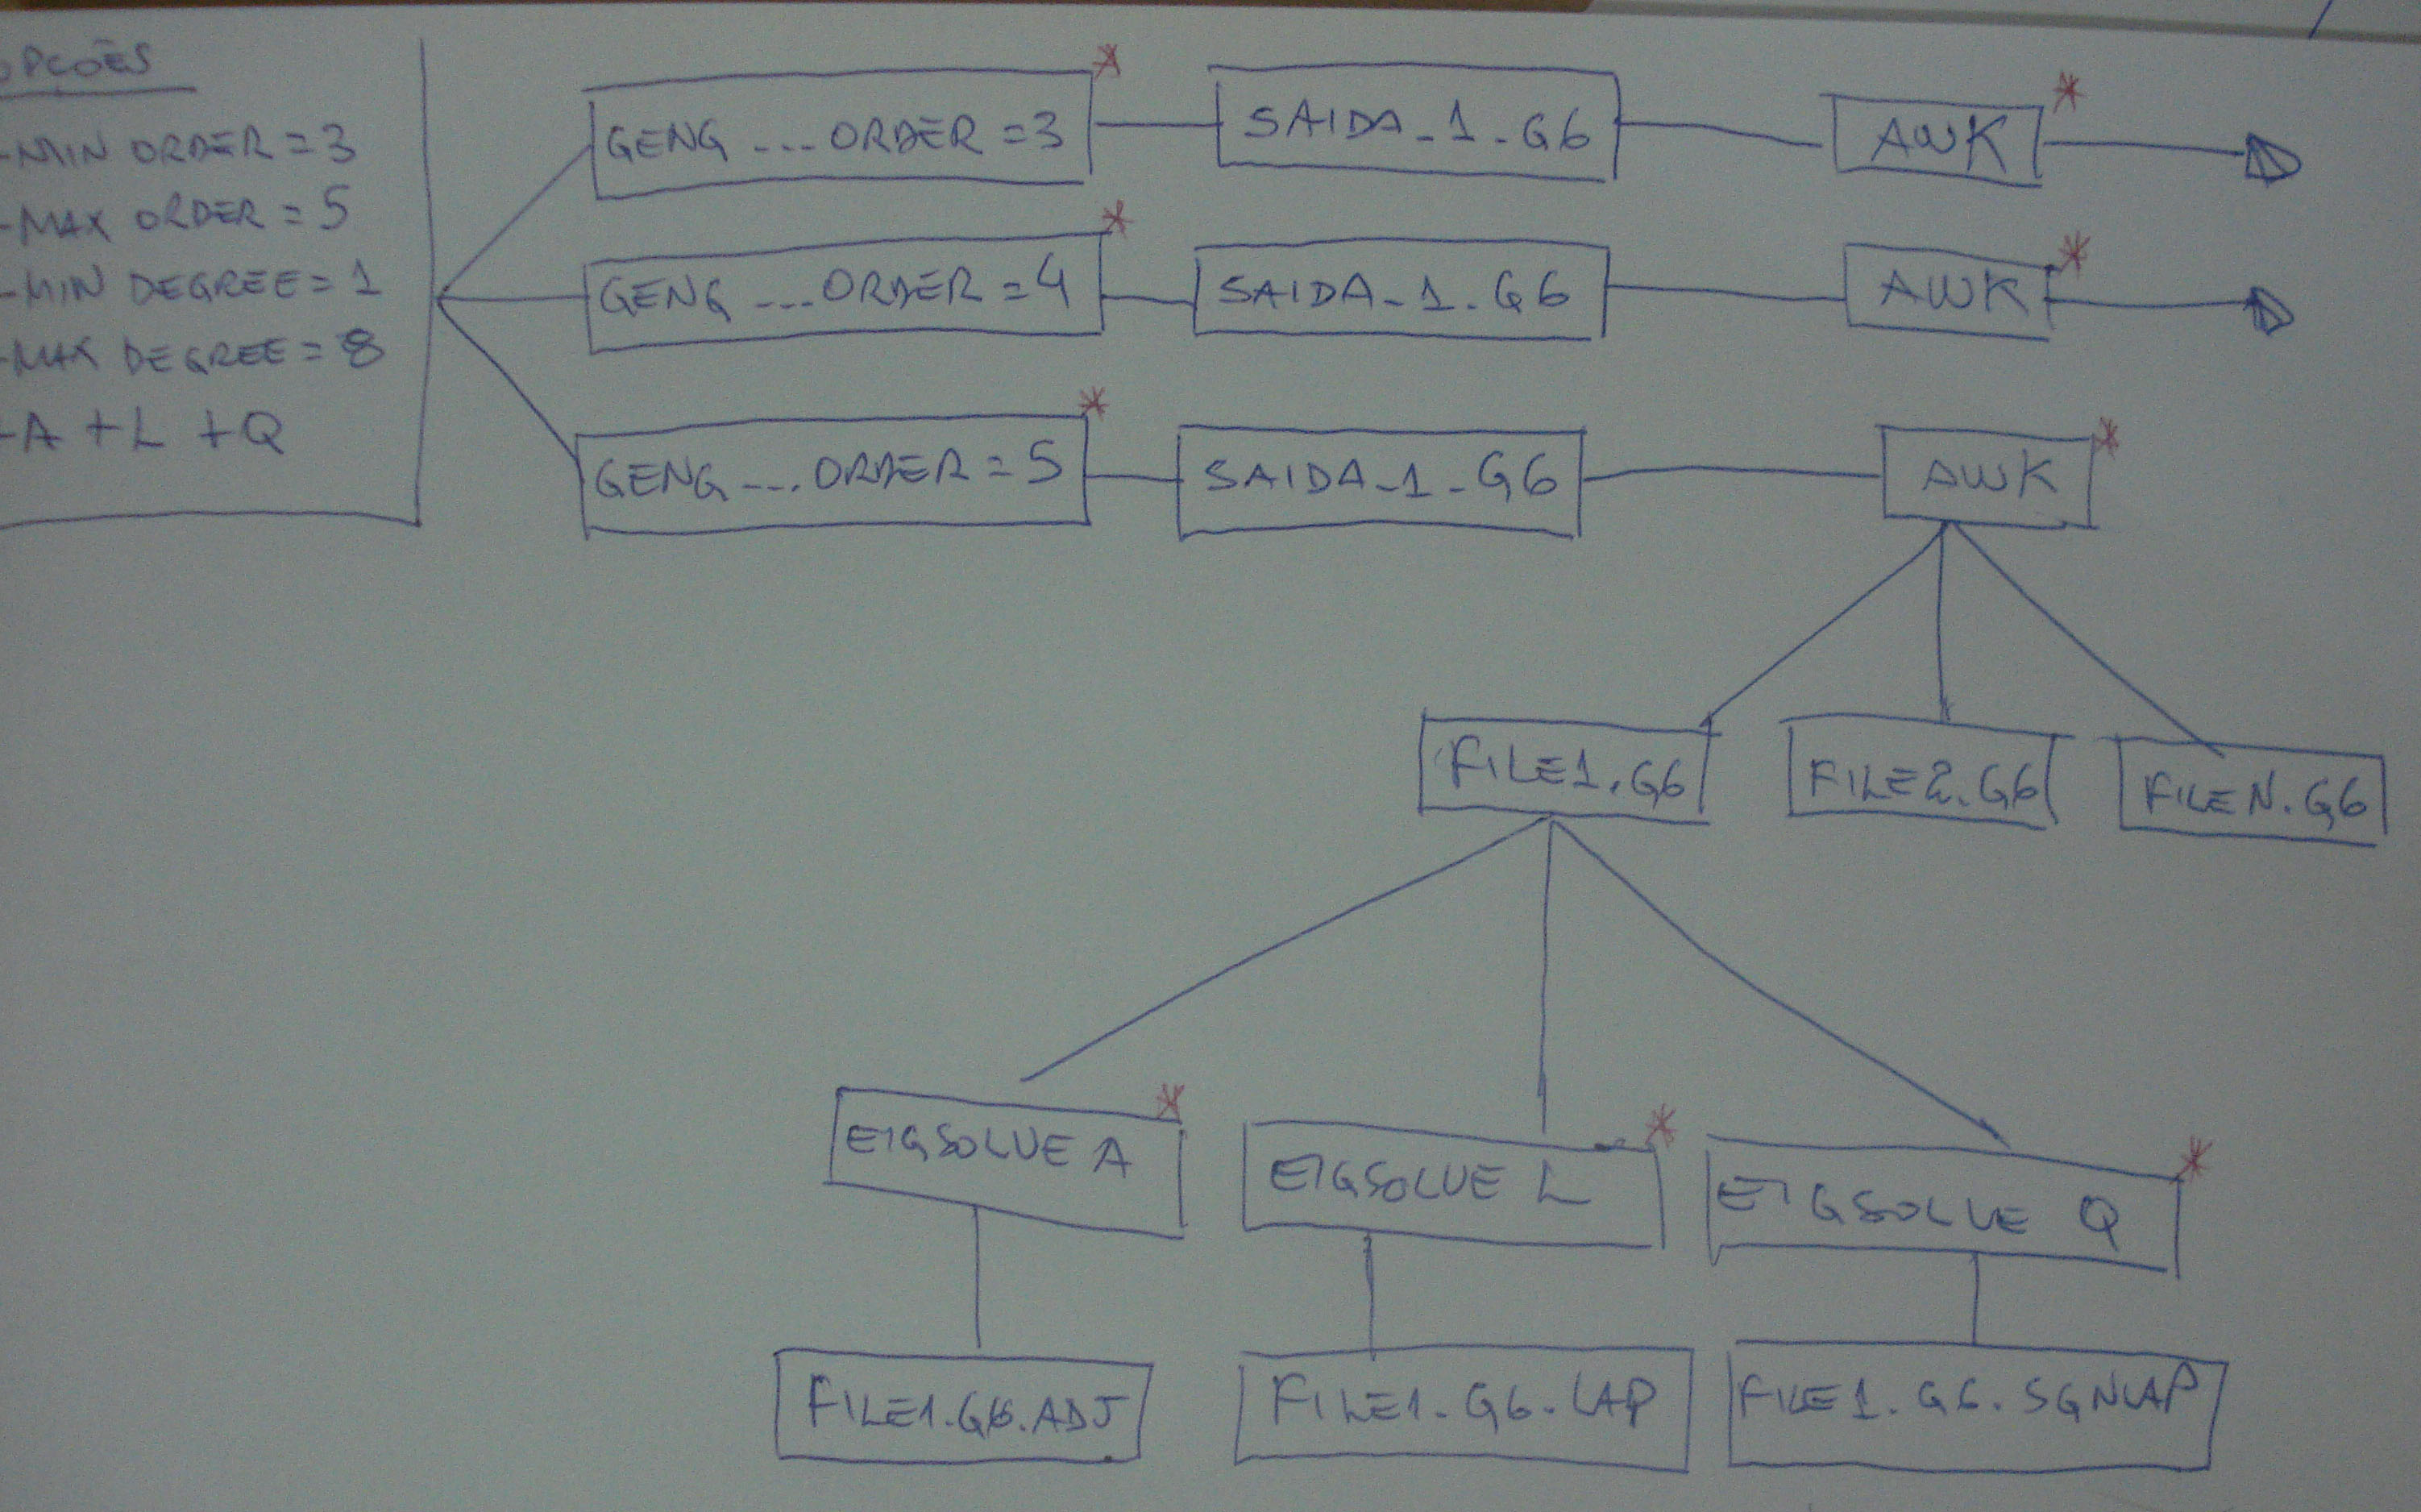 OPÇÕES
-MIN ORDER = 3
-MAX ORDER = 5
-MIN DEGREE = 1
-MAX DEGREE = 8
+A +L +Q
GENG ... ORDER = 3 *
SAIDA_1_G6
AWK *
GENG ... ORDER = 4 *
SAIDA_1.G6
AWK *
GENG ... ORDER = 5 *
SAIDA_1_G6
AWK *
FILE1.G6
FILE2.G6
FILEN.G6
EIGSOLVE A *
EIGSOLVE L *
EIGSOLVE Q *
FILE1.G6.ADJ
FILE1.G6.LAP
FILE1.G6.SGNLAP